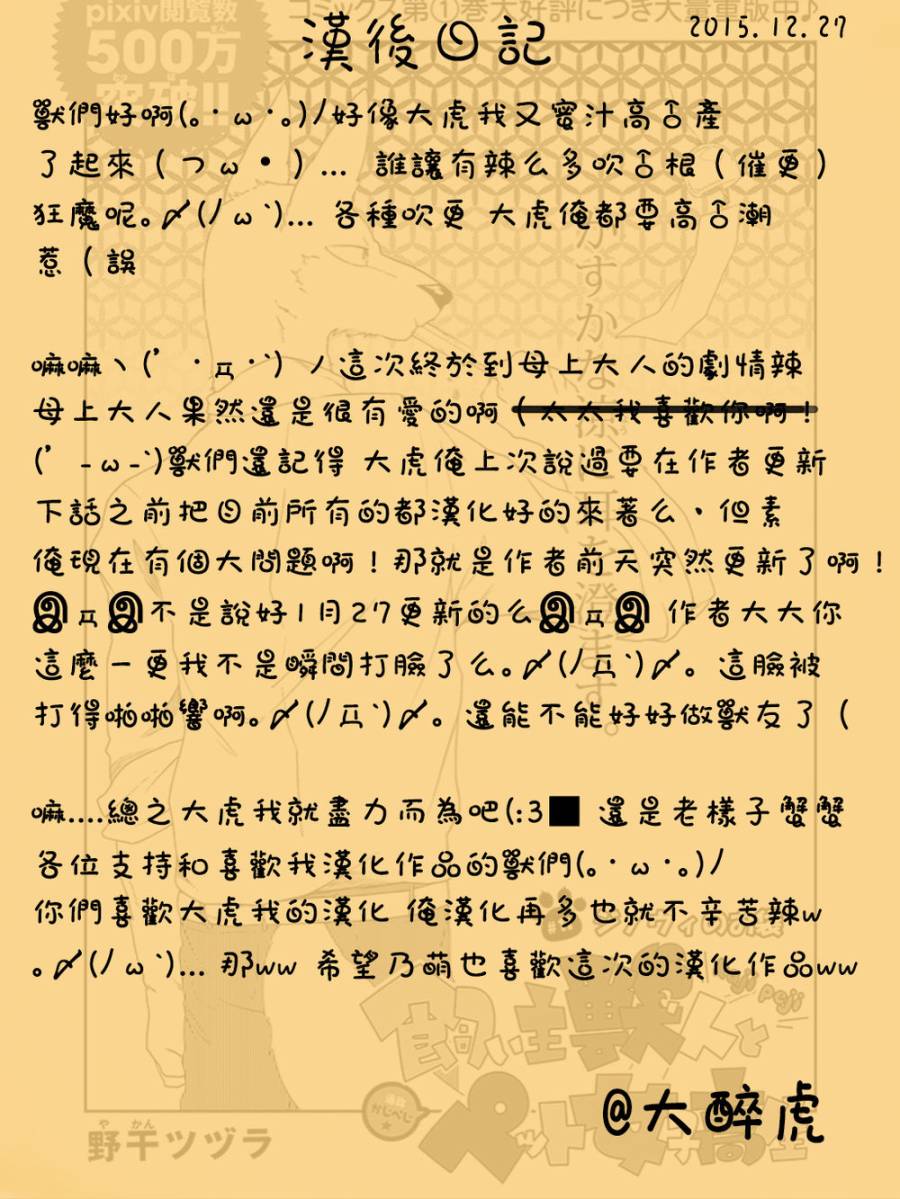 pixiv閲覧数
500万
突破!!
コミックス第①巻大好評につき大量重版中♪
漢後日記
2015.12.27
獸們好啊(｡･ω･｡)ﾉ好像大虎我又蜜汁高凸產
了起來（つω•）... 誰讓有辣么多吹凸根（催更）
狂魔呢｡〆(ﾉω`)... 各種吹更 大虎俺都要高凸潮
惹（誤
嘛嘛ヽ(′･д･`)ノ這次終於到母上大人的劇情辣
母上大人果然還是很有愛的啊（太太我喜歡你啊！
(′-ω-`)獸們還記得 大虎俺上次說過要在作者更新
下話之前把目前所有的都漢化好的來著么、但素
俺現在有個大問題啊！那就是作者前天突然更新了啊！
இдஇ不是說好1月27更新的么இдஇ 作者大大你
這麼一更我不是瞬間打臉了么｡〆(ﾉД`)〆｡ 這臉被
打得啪啪響啊｡〆(ﾉД`)〆｡ 還能不能好好做獸友了（
嘛....總之大虎我就盡力而為吧(:3■ 還是老樣子蟹蟹
各位支持和喜歡我漢化作品的獸們(｡･ω･｡)ﾉ
你們喜歡大虎我的漢化 俺漢化再多也就不辛苦辣w
｡〆(ﾉω`)... 那ww 希望乃萌也喜歡這次的漢化作品ww
飼い主獣人と
ペット女子高生
かじぺじ
@大醉虎
野干ツヅラ
やかん